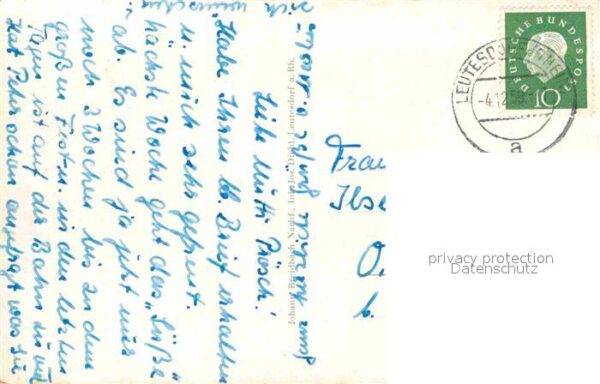 Liebe Mutti Päsch!
Habe Ihren lb. Brief erhalten
u. mich sehr gefreut.
Nächste Woche geht das "Süße"
ab. Es sind ja jetzt nur
noch 3 Wochen bis zu dem
großen Fest u. in den letzten
Tagen ist auf der Bahn zu viel
Hat Peter schon angefragt was Sie
sich wünschen
Johann Nachf., Inh. Jos. Leutesdorf a. Rh.
Frau
Ilse
O.
b.
DEUTSCHE BUNDESPOST
10
LEUTESDORF
-4.12.59
a
privacy protection
Datenschutz